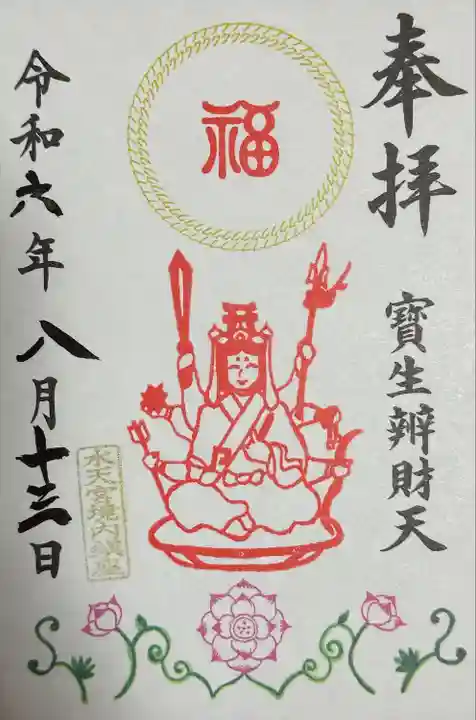 奉拝
寶生辨財天
福
水天宮境内鎮座
令和六年八月十三日